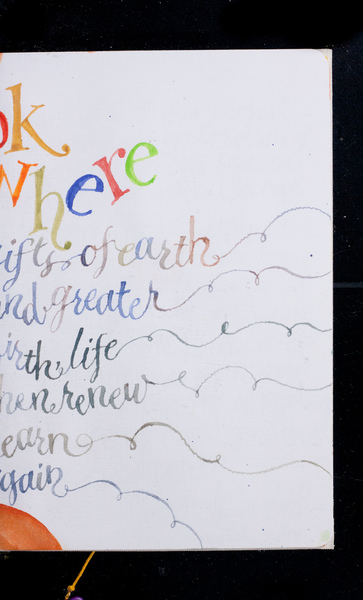 ok
where
gifts of earth
and greater
birth, life
then renew
learn
again